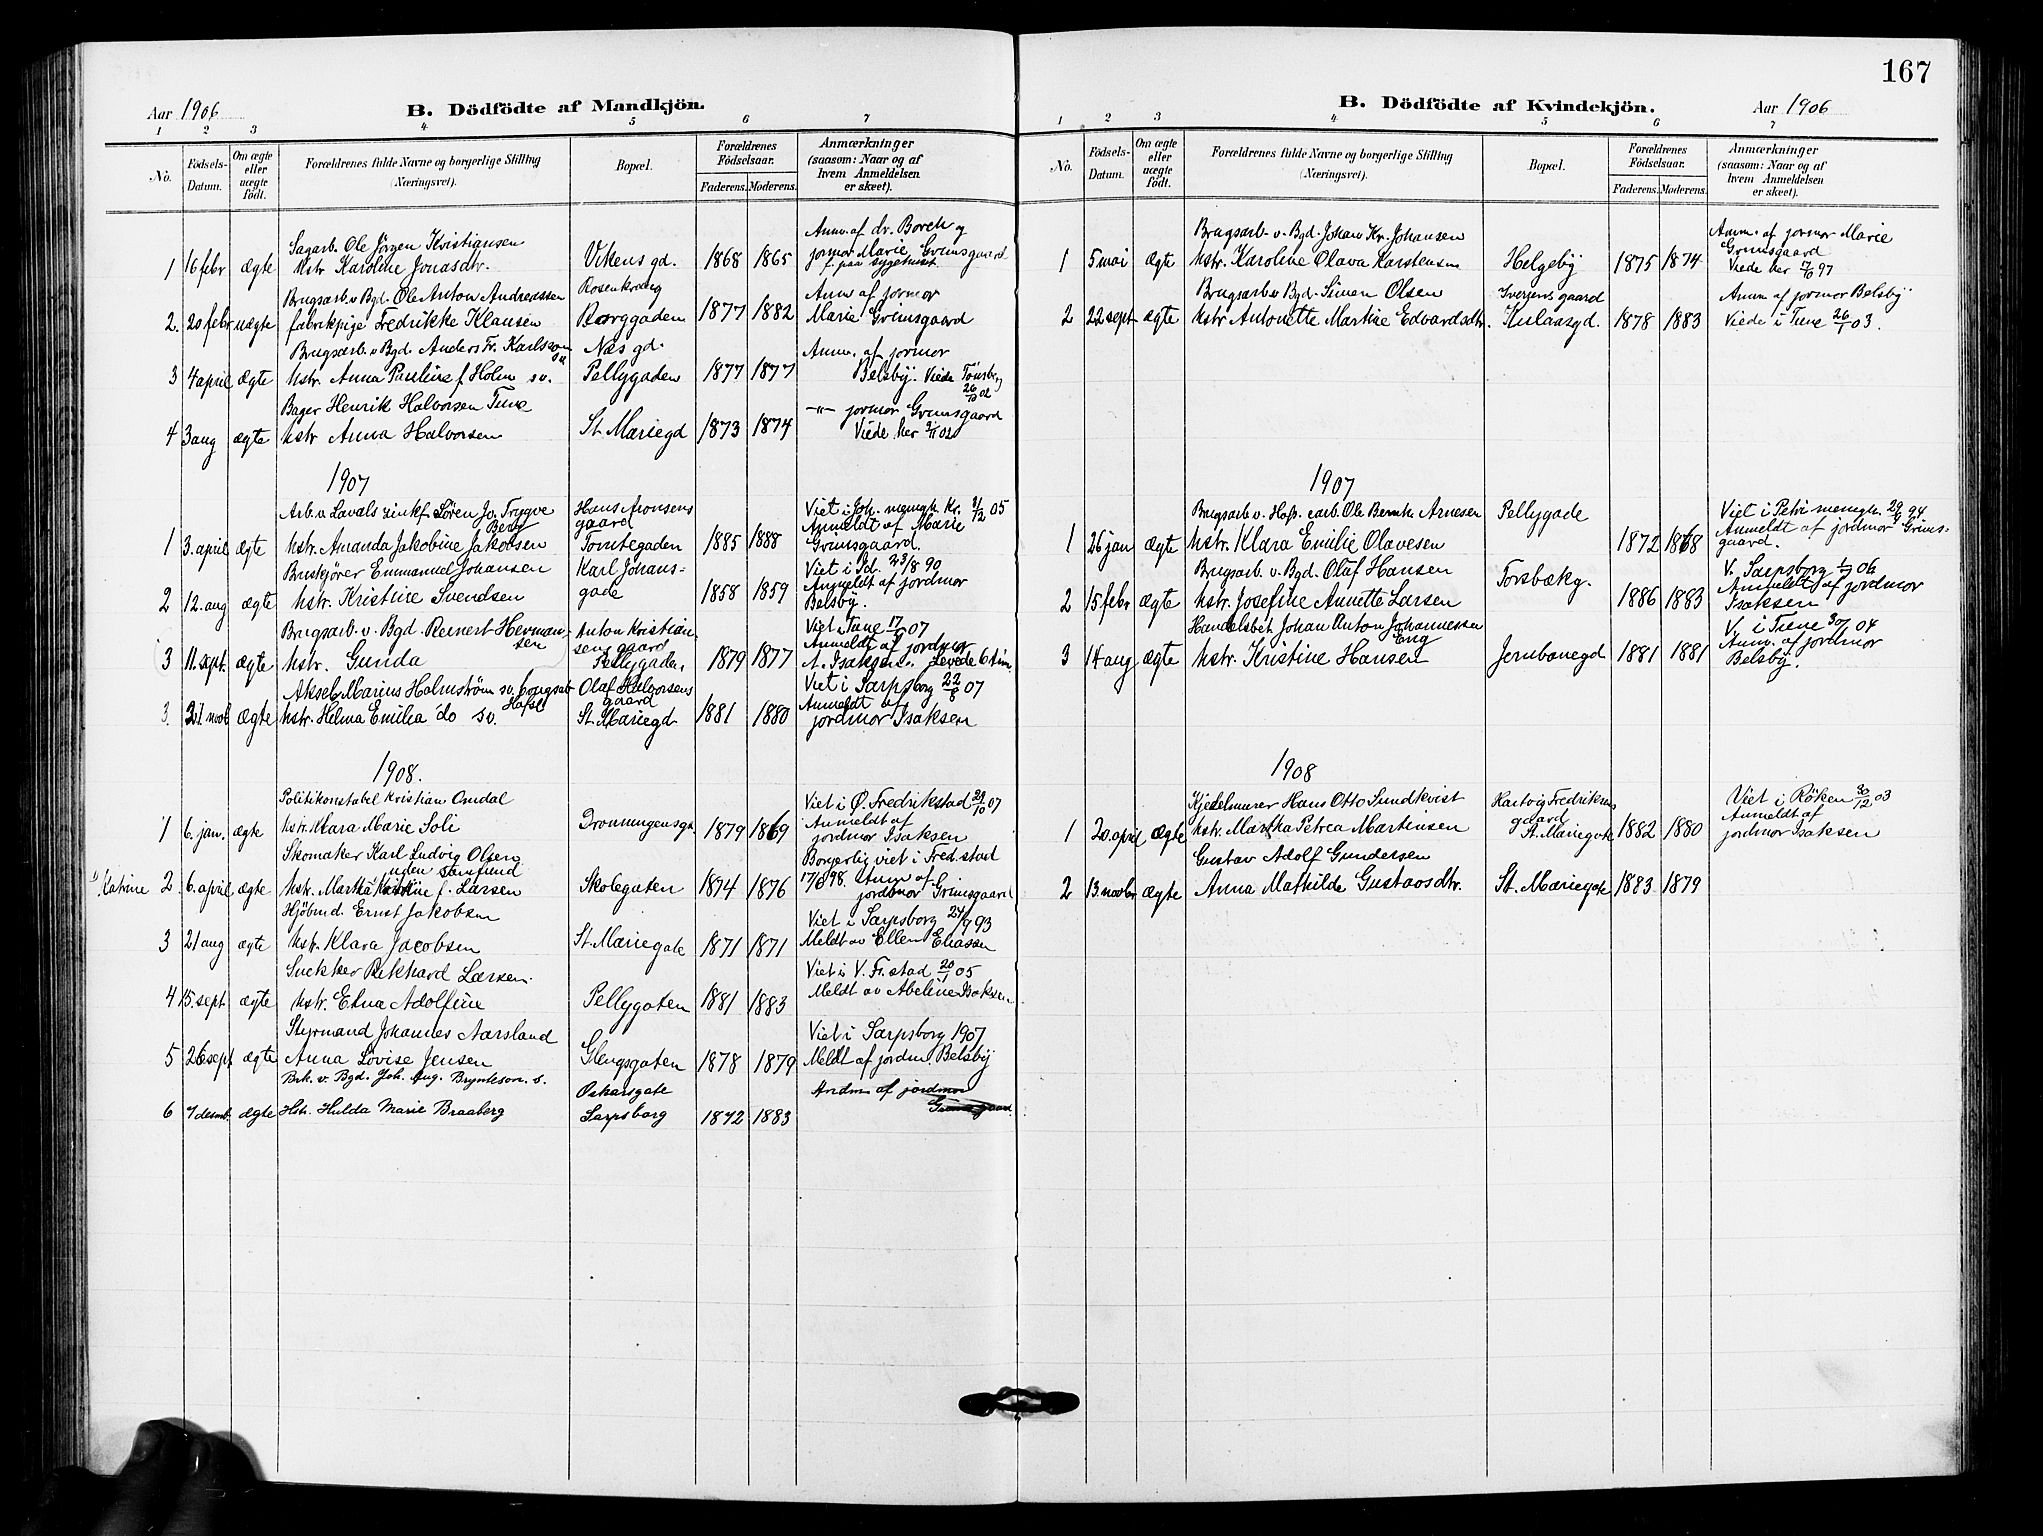 Aar 1906
B. Dödfödte af Mandkjön.
1 2 3 4 5 6 7
No.
Födsels-Datum.
Om ægte eller uægte födt.
Forældrenes fulde Navne og borgerlige Stilling (Næringsvei).
Bopæl.
Forældrenes Födselsaar.
Faderens. Moderens.
Anmærkninger (saasom: Naar og af hvem Anmeldelsen er skeet).
Sagarb. Ole Jörgen Kristiansen Anm. af dr. Borch og
1 16 febr ægte hstr Karoline Jonasdtr. Vikens gd. 1868 1865 jormor Marie Grimsgaard
Rosenkrang
Brugsarb. v. Bgd. Ole Anton Andreassen Anm af jormor
2. 20 febr uægte fabrikpige Fredrikke Klausen Borggaden 1877 1882 Marie Grimsgaard
Brugsarb. v Bgd. Anders Fr. Karlsson Næs gd. Anm. af jormor
3 4 april ægte hstr. Anna Pauline f Holm sv. Pellygaden 1877 1877 Belsby. Viede Tönsberg 26/10 02
Bager Henrik Halvorsen Tune -"- jormor Grimsgaard
4 3 aug ægte hstr Anna Halvorsen St. Mariegd 1873 1874 Viede her 2/11 02
1907
Arb. v Lavals zinkf. Søren Jo. Trygve Berg Hans Aronsens gaard Viet i Joh. menigh. Kr. 31/12 05
Anmeldt af Marie
1 3. april ægte hstr. Amanda Jakobine Jakobsen Tomtegaden 1885 1888 Grimsgaard.
Bruskjörer Emmanuel Johansen Karl Johans- Viet i Sd. 23/8 90
Anmeldt af jordmor
2 12. aug ægte hstr. Kristine Svendsen gade 1858 1859 Belsby.
Brugsarb. v. Bgd. Reinert Hermansen Anton Kristiansens gaard Viet i Tune 17/ 07
Anmeldt af jordmor
3 11. sept. ægte hstr. Gunda Pellygade. 1879 1877 A. Isaksen. Levede 6 tim.
Aksel Marius Holmstöm sv. brugsarb Hafsl Olaf Halvorsens gaard Viet i Sarpsborg 22/8 07
Anmeldt af
3. 27 novb ægte hstr. Helma Emilia do sv. St. Mariegd 1881 1880 jordmor Isaksen
1908.
Politikonstabel Kristian Omdal Viet i Ø. Fredrikstad 29/10 07
Anmeldt af
1 6. jan. ægte hstr Klara Marie Soli Dronningensgt. 1879 1869 jordmor Isaksen
Skomaker Karl Ludvig Olsen Borgerlig viet i Fred.stad
uden samfund
1) Katrine 2 6. april ægte hstr. Martha f. Larsen Skolegaten 1874 1876 17/8 98. Anm. af
jordmor Grimsgaard
Hjöbmd. Ernst Jakobsen Viet i Sarpsborg 24/9 93
3 21 aug ægte hstr. Klara Jacobsen St. Mariegate 1871 1871 Meldt av Ellen Eliassen
Snekker Rikhard Larsen Viet i V. Fr.stad 20/1 05
4 15. sept ægte hstr. Edna Adolfine Pellygaten 1881 1883 Meldt av Abeline Isaksen
Styrmand Johannes Aarsland Viet i Sarpsborg 1907
5 26 sept ægte Anna Lovise Jensen Glengsgaten 1878 1879 Meldt af jordm. Belsby
Brk. v. Bgd. Joh. Aug. Brynteson. s. Oskarsgate Andm af jordmor
6 7 desmb. ægte Hstr. Hulda Marie Braaberg Sarpsborg 1872 1883 Grimsgaard
167
B. Dödfödte af Kvindekjön.
Aar 1906
1 2 3 4 5 6 7
No.
Födsels-Datum.
Om ægte eller uægte födt.
Forældrenes fulde Navne og borgerlige Stilling (Næringsvei).
Bopæl.
Forældrenes Födselsaar.
Faderens. Moderens.
Anmærkninger (saasom: Naar og af hvem Anmeldelsen er skeet).
Brugsarb. v. Bgd. Johan Kr. Johansen Anm. af jormor Marie
Grimsgaard
1 5 mai ægte hstr. Karoline Olava Karstensen Helgeby 1875 1874 Viede her 17/10 97
Brugsarb. v. Bgd. Simen Olsen Iversens gaard Anm af jormor Belsby
2 22 sept ægte hstr Antonette Martine Edvardsdtr. Kulaasgd. 1878 1883 Viede i Tune 26/1 03.
1907
Brugsarb. v. Hafs. carb. Ole Bernth. Arnesen Pellygade Viet i Petri menigh. 29/9 94
Anmeldt af jordmor Grims-
1 26 jan ægte hstr. Klara Emilie Olavesen 1872 1868 gaard.
Brugsarb. v. Bgd. Olaf Hansen V. Sarpsborg 1/7 06
Anmeldt af jordmor
2 15 febr ægte hstr. Josefine Annette Larsen Torsbækg. 1886 1883 Isaksen
Handelsbet Johan Anton Johannessen Eng V. i Tune 30/7 04
Anm. af jordmor
3 14 aug ægte hstr. Kristine Hansen Jernbanegd 1881 1881 Belsby.
1908
Kjedelmurer Hans Otto Sundkvist Hartvig Fredriksens gaard Viet i Röken 30/12 03
Anmeldt af
1 20. april ægte hstr. Martha Petrea Martinsen St. Mariegate 1882 1880 jordmor Isaksen
Gustav Adolf Gundersen
2 13. novbr ægte Anna Mathilde Gustavsdtr. St. Mariegate 1883 1879